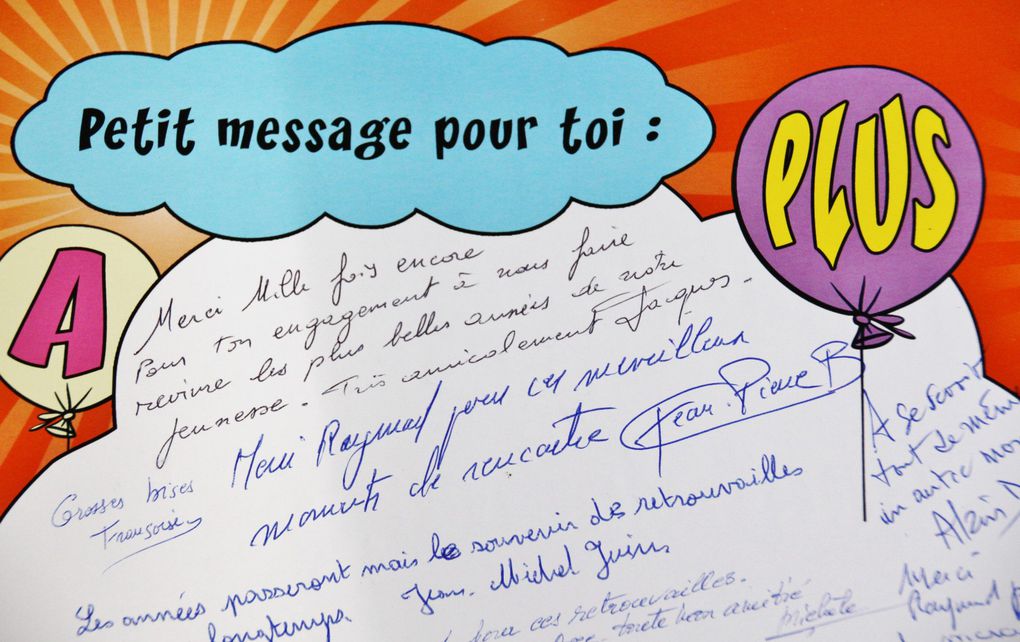 Petit message pour toi :
A
PLUS
Merci Mille fois encore
Pour ton engagement à nous faire
revivre les plus belles années de notre
jeunesse - Très amicalement Jacques -
Merci Raymond pour ces merveilleux
moments de rencontre Jean-Pierre B
Grosses bises
Françoise
Les années passeront mais le souvenir des retrouvailles
longtemps. Jean-Michel
A se revoir
tout de même
un autre
Alain
pour ces retrouvailles.
toute bon amitié
Michèle
Merci
Raymond